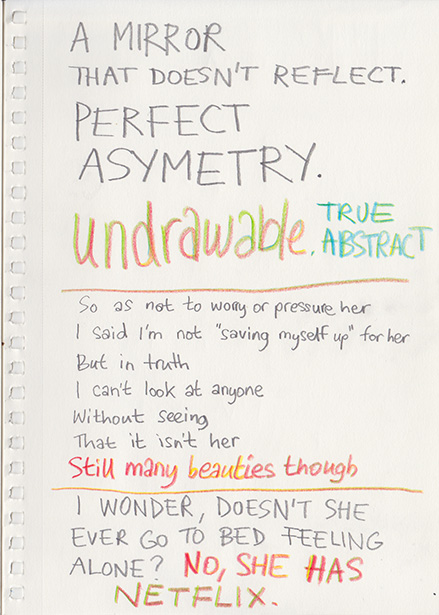 A MIRROR
THAT DOESN'T REFLECT.
PERFECT
ASYMETRY.
undrawable. TRUE
ABSTRACT
So as not to worry or pressure her
I said I'm not "saving myself up" for her
But in truth
I can't look at anyone
Without seeing
That it isn't her
Still many beauties though
I WONDER, DOESN'T SHE
EVER GO TO BED FEELING
ALONE? NO, SHE HAS
NETFLIX.